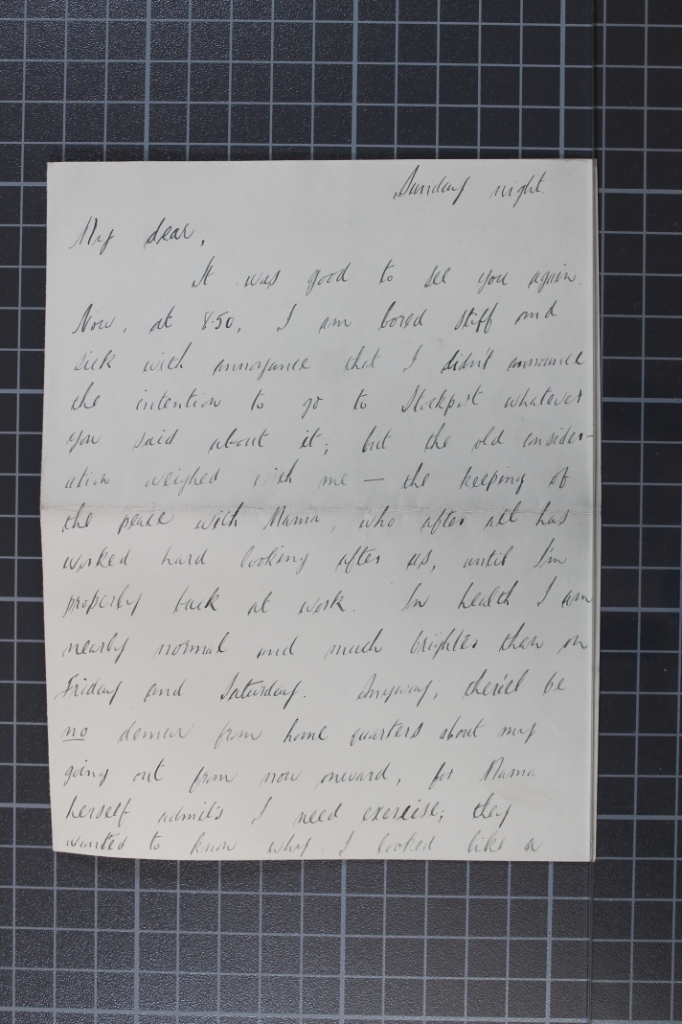 Sunday night.
My dear,
It was good to see you again.
Now, at 8.50, I am bored stiff and
sick with annoyance that I didn't announce
the intention to go to Stockport whatever
you said about it; but the old consider-
ation weighed with me — the keeping of
the peace with Mama, who after all has
worked hard looking after us, until I'm
properly back at work. In health I am
nearly normal and much brighter than on
Friday and Saturday. Anyway, there'll be
no demur from home quarters about my
going out from now onward, for Mama
herself admits I need exercise; they
wanted to know why I looked like a